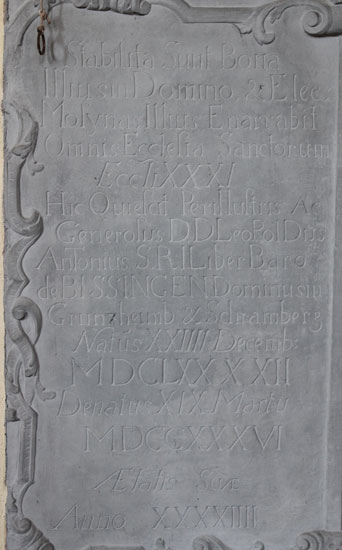 Stabilita Sunt Bona
Illius in Domino & Elee
Mosynas Illius Enarrabit
Omnis Ecclesia Sanctorum
Eccli XXXI
Hic Quiescit Perillustris Ac
Generosus D.D. Leopoldus
Antonius S.R.I. Liber Baro
de BISSINGEN Dominus in
Grunzheimb & Schramberg
Natus XXIIII Decemb:
MDCLXXXXII
Denatus XIX Martii
MDCCXXXVI
Ætatis Suæ
Anno XXXXIIII